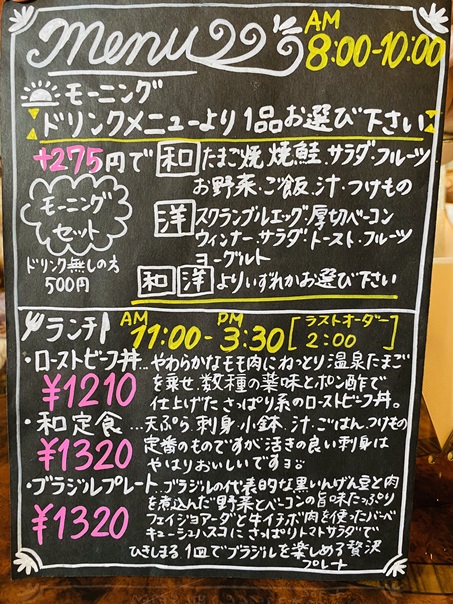 menu
AM
8:00-10:00
モーニング
ドリンクメニューより1品お選び下さい
+275円で 和 たまご焼.焼鮭.サラダ.フルーツ
お野菜.ご飯.汁.つけもの
モーニング
セット
洋 スクランブルエッグ.厚切ベーコン
ウィンナー.サラダ.トースト.フルーツ
ヨーグルト
ドリンク無しの方
500円
和 洋 よりいずれかお選び下さい
ランチ AM 11:00- PM 3:30 [ラストオーダー 2:00]
・ローストビーフ丼…やわらかなもも肉にねっとり温泉たまご
を乗せ数種の薬味とポン酢で
¥1210
仕上げたさっぱり系のローストビーフ丼。
・和定食…天ぷら.刺身.小鉢.汁.ごはん.つけもの
定番のものですが活きの良い刺身は
¥1320
やはりおいしいですヨ。
・ブラジルプレート…ブラジルの代表的な黒いんげん豆と肉
を煮込んだ野菜とベーコンの旨味たっぷり
¥1320
フェイジョアーダと牛イチボ肉を使ったバーベ
キューシュハスコにさっぱりトマトサラダで
ひきしまる1皿でブラジルを楽しめる贅沢
プレート